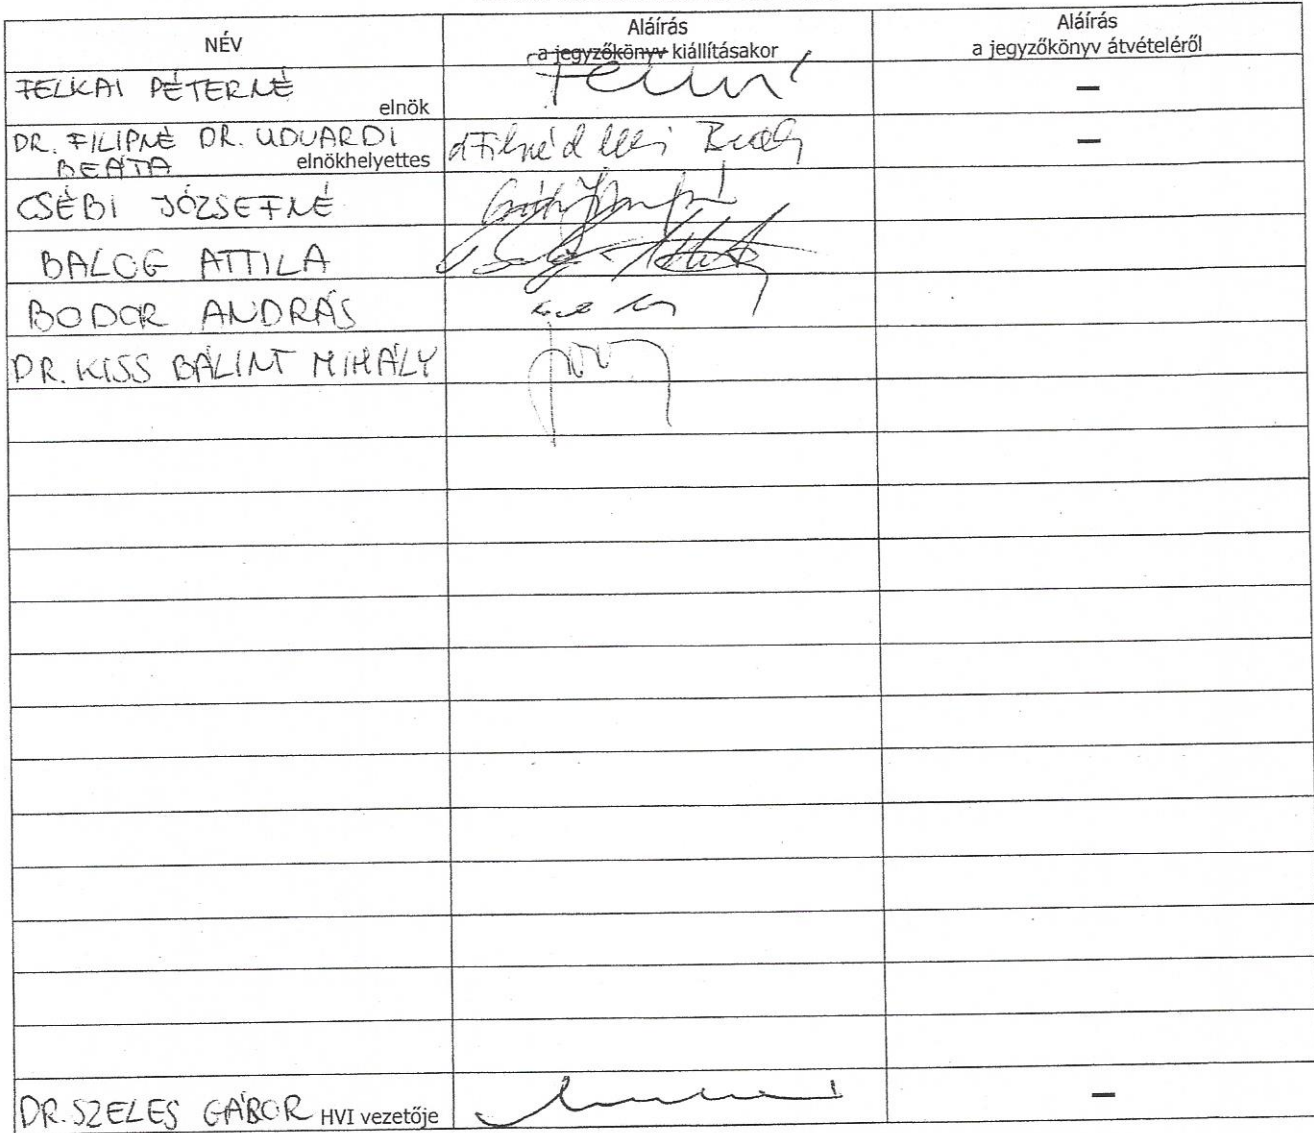 NÉV
Aláírás
a jegyzőkönyv kiállításakor
Aláírás
a jegyzőkönyv átvételéről
FELKAI PÉTERNÉ
elnök
–
DR. FILIPNÉ DR. UDVARDI
BEÁTA elnökhelyettes
–
CSÉBI JÓZSEFNÉ
BALOG ATTILA
BODOR ANDRÁS
DR. KISS BÁLINT MIHÁLY
DR. SZELES GÁBOR HVI vezetője
–